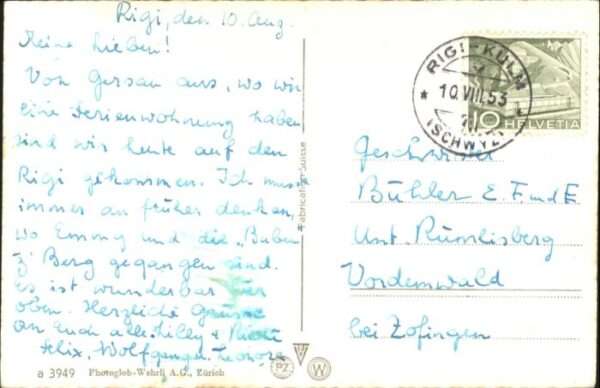 Rigi, den 10. Aug.
Meine Lieben!
Von Gersau aus, wo wir
eine Ferienwohnung haben
sind wir heute auf den
Rigi gekommen. Ich muss
immer an früher denken,
wo Emmy und die „Buben
z' Berg gegangen sind.
Es ist wunderbar hier
oben. Herzliche Grüsse
an Euch alle. Lilly &
Felix, Wolfgang u. Leonore
a 3949 Photoglob-Wehrli A.G., Zürich
Fabrication Suisse
PZ W
RIGI-KULM
10.VIII.53
(SCHWYZ)
10 HELVETIA
Geschwister
Bühler E. F. und E
Unt. Rümlisberg
Vordemwald
bei Zofingen